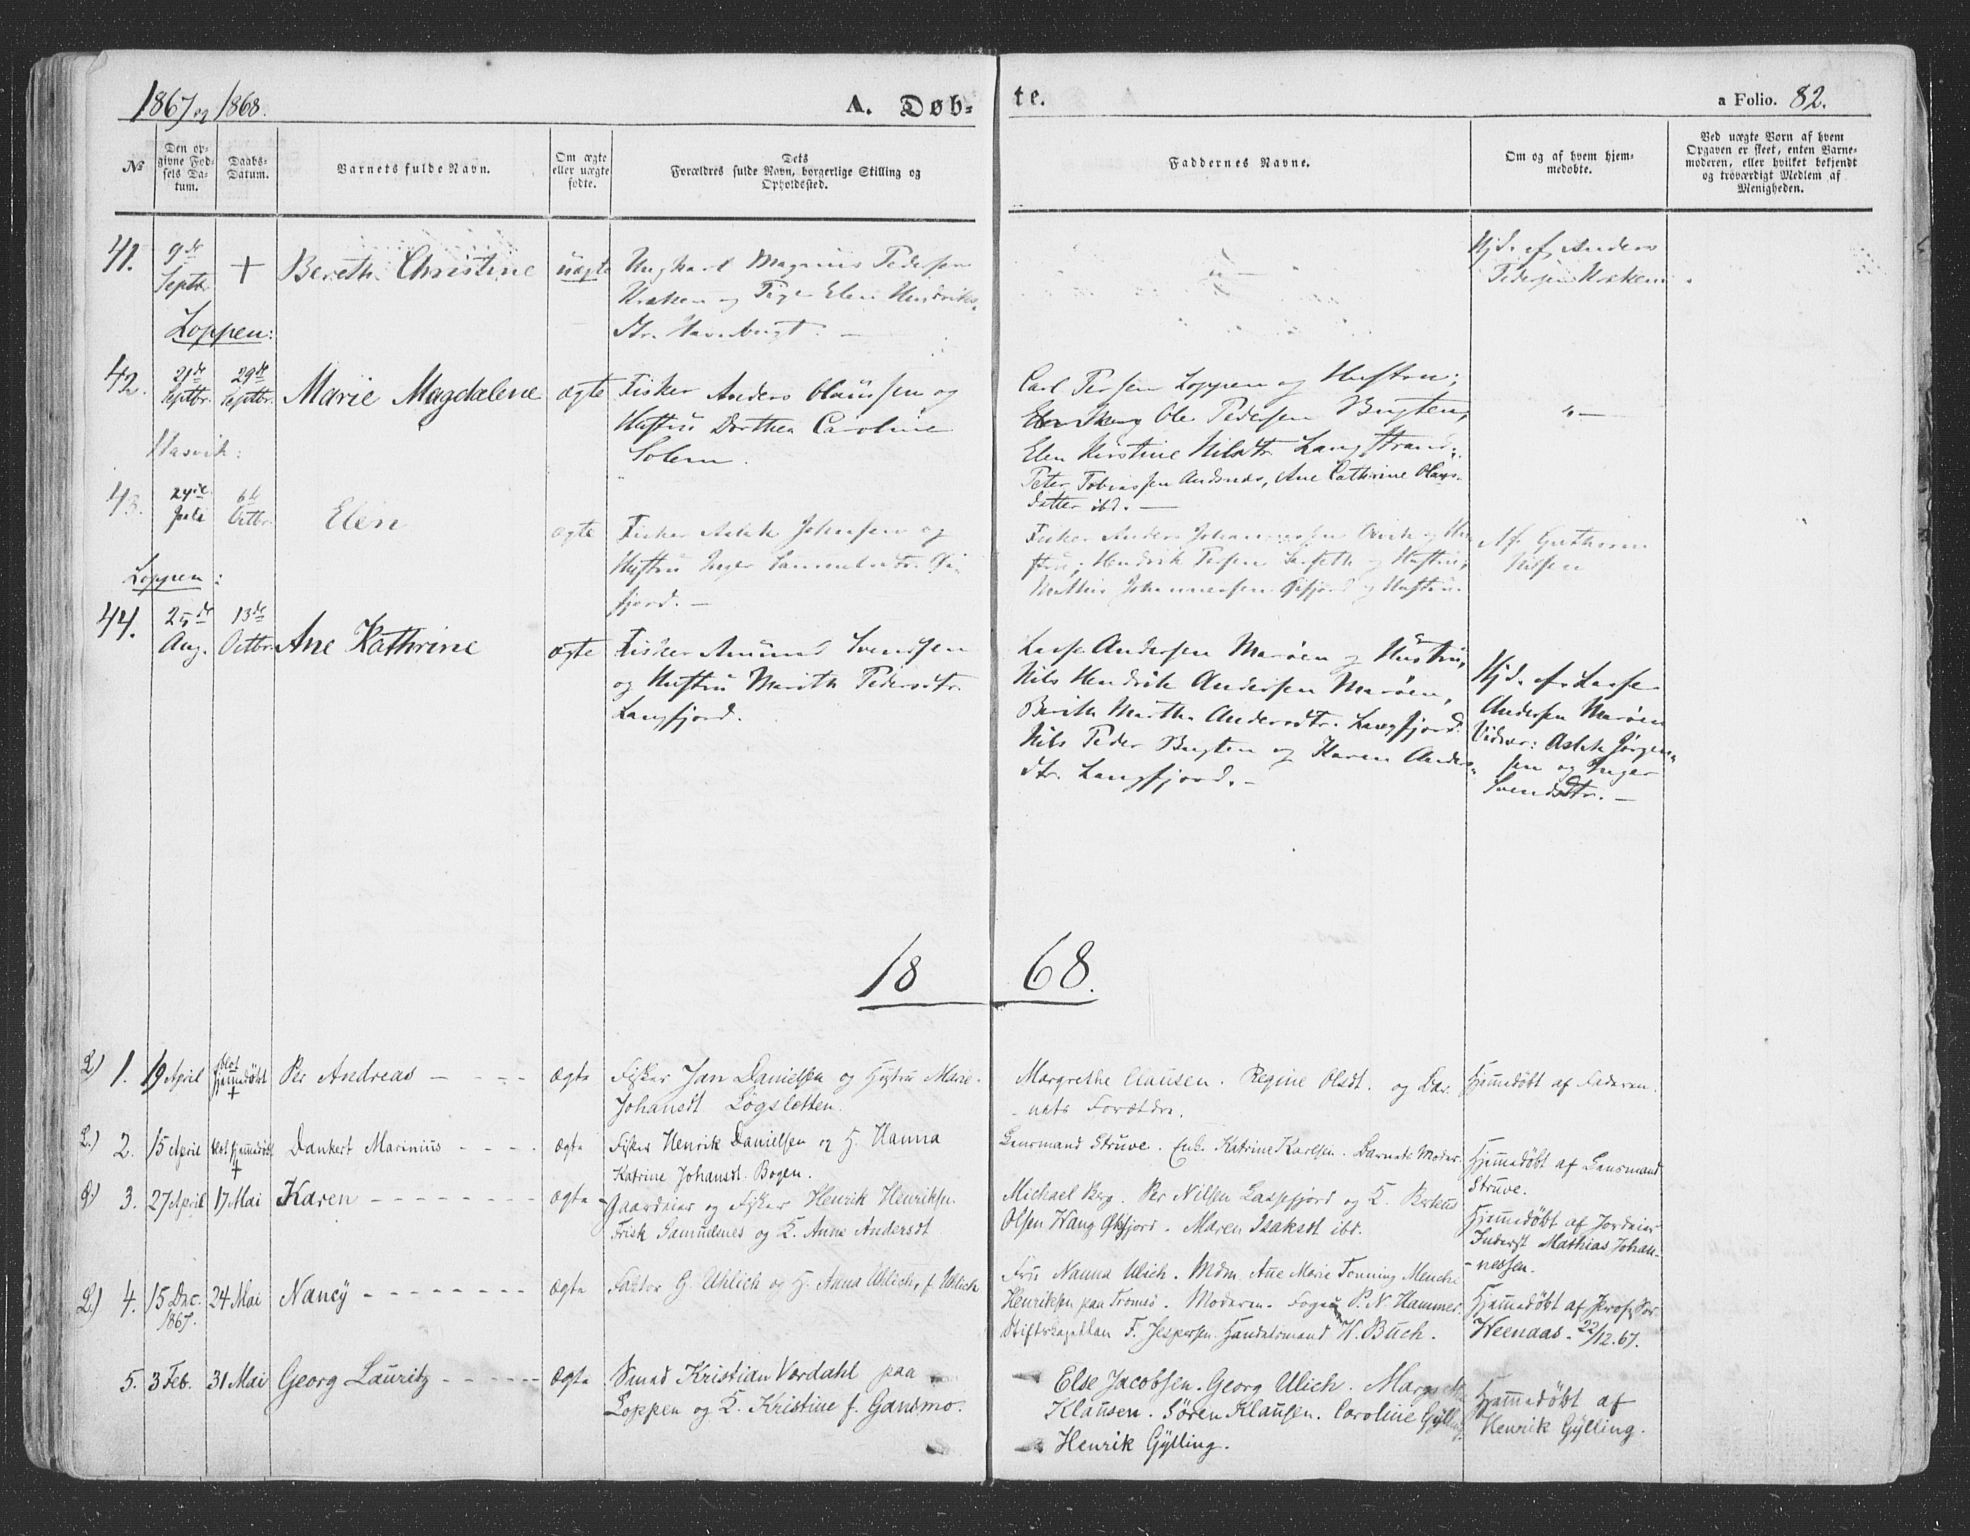 1867 og 1868.
A. Døb-
te.
a Folio. 82.
No
Den op-
givne Fød-
sels Da-
tum.
Daabs-
Datum.
Barnets fulde Navn.
Om ægte
eller uægte
fødte.
Dets
Forældres fulde Navn, borgerlige Stilling og
Opholdssted.
Faddernes Navne.
Om og af hvem hjem-
medøbte.
Ved uægte Børn af hvem
Opgaven er skeet, enten Barne-
moderen, eller hvilket bekjendt
og troværdigt Medlem af
Menigheden.
41.
9de
Septbr
+
Bereth Christine
uægte
Ungkarl Magnus Pedersen
og Pige Elen Hendriks-
dtr.
Hjd. af Anders
Pedersen
Loppen:
42.
21de
Septbr.
29de
Septbr.
Marie Magdalene
ægte
Fisker Anders Olaussen og
Hustru Dorthea Caroline
Solem.
Carl Persen Loppen og Hustru;
Ole Pedersen Bugten,
Elen Kirstine Nilsdtr Langstrand.
Peter Tobiassen Andsnæs, Ane Cathrine Olaus-
datter ibd. —
" —
Hasvik:
43.
24de
Juli
6te
Octbr.
Elen
ægte
Fisker Aslak Johnsen og
Hustru Inger Samuelsdtr.
fjord. —
Fisker Anders Johannessen og Hu-
stru; Hendrik Persen og Hustru,
Mathis Johannessen og Hustru.
Af Guthorm
Nilsen
Loppen:
44.
25de
Aug.
13de
Octbr.
Ane Kathrine
ægte
Fisker Amund Svendsen
og Hustru Marith Pedersdtr.
Langfjord.
Lasse Andersen Marøen og Hustru,
Nils Hendrik Andersen Marøen,
Berith Martha Andersdtr. Langfjord.
Nils Peder Bugten og Karen Anders-
dtr. Langfjord. —
Hjd. af Lasse
Andersen Marøen
Vidner: Aslak Jørgen-
sen og Inger
Svendsdtr. —
18 68.
L) 1.
19 April
blot
hjemmedøbt
+
Per Andreas
Ægte
Fisker Jan Danielsen og Hustru Marie
Johansdt Løgsletten.
Margrethe Clausen. Regine Olsdt. og Bar-
nets Forældre.
Hjemmedøbt af Faderen.
L.) 2.
15 April
blot hjemmedøbt
+
Dankert Marinius
ægte
Fisker Henrik Danielsen og H. Hanna
Katrine Johansdt. Bogen.
Lensmand Struve. Enke Katrine Karlsen. Barnets Moder.
Hjemmedøbt af Lensmand
Struve.
3.
27 April
17 Mai
Karen
ægte
Gaardeier og Fisker Henrik Henriksen
Frisk Samudnes og K. Anne Andersdt
Michael Berg. Per Nilsen Lassefjord og K.
Olsen Wang Øksfjord. Maren Isaksdt ibd.
Hjemmedøbt af Jordeier
Mathias Johan-
nessen.
L.) 4.
15 Dec.
1867.
24 Mai
Nancy
ægte
Factor G. Uhlich og H. Anna Uhlich, f. Uhlich
Fru Nanna Ulich. Mdm. Ane Marie Tonning Menche
Henriksen paa Tromsø. Moderen. Foged P. N. Hammer.
Stiftskapellan F. Jespersen. Handelsmand W. Buch.
Hjemmedøbt af
Weenaas. 22/12.67.
5.
3 Feb.
31 Mai
Georg Lauritz
Ægte
Smed Kristian Værdahl paa
Loppen og K. Kristine f. Gansmo.
Else Jacobsen. Georg Ulich.
Klausen. Søren Klausen. Caroline Gylling
Henrik Gylling.
Hjemmedøbt af
Henrik Gylling.